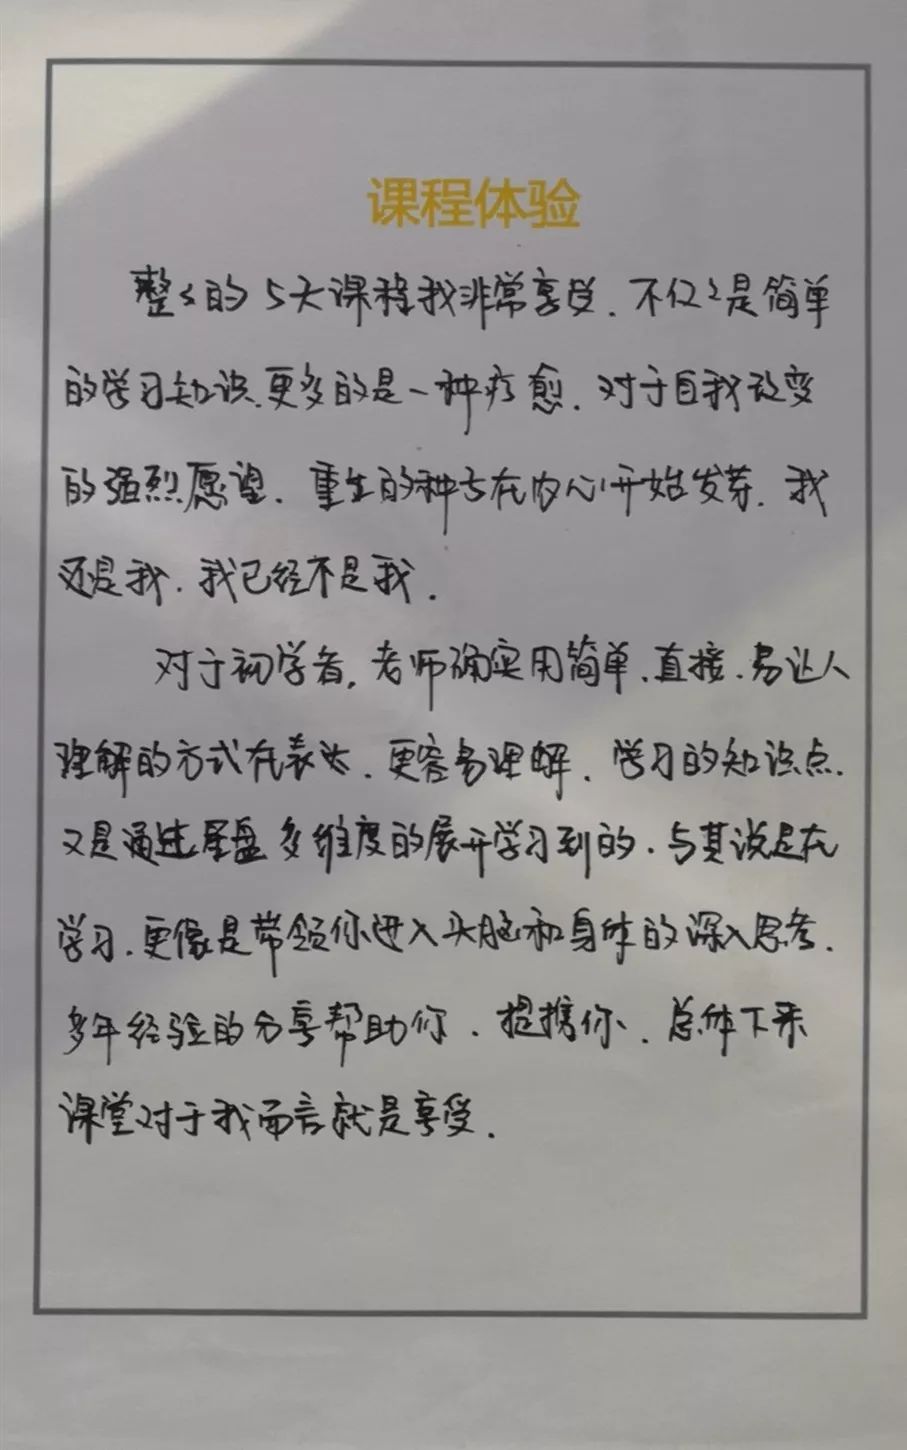 课程体验
整整的5天课程我非常享受.不仅仅是简单
的学习知识.更多的是一种疗愈.对于自我改变
的强烈愿望.重生的种子在内心开始发芽.我
还是我.我已经不是我.
对于初学者,老师确实用简单.直接.易让人
理解的方式在表达.更容易理解.学习的知识点.
又是通过星盘多维度的展开学习到的.与其说是在
学习.更像是带领你进入头脑和身体的深入思考.
多年经验的分享帮助你.提携你.总体下来
课堂对于我而言就是享受.